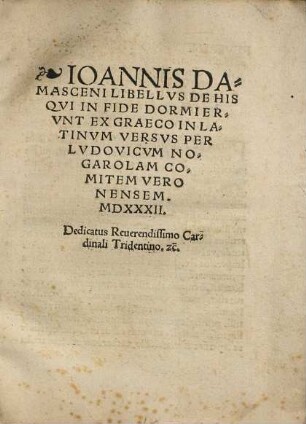 ❧ IOANNIS DA-
MASCENI LIBELLVS DE HIS
QVI IN FIDE DORMIER-
VNT EX GRAECO IN LA-
TINVM VERSVS PER
LVDOVICVM NO-
GAROLAM CO-
MITEM VERO
NENSEM.
MDXXXII.
Dedicatus Reuerendissimo Car-
dinali Tridentino. zc̄.